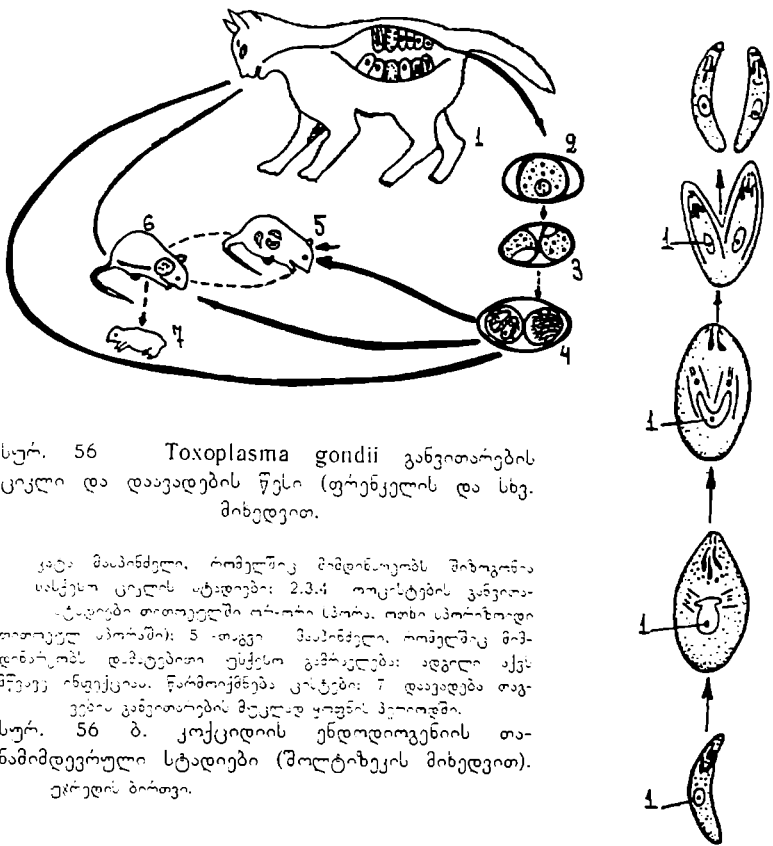 1
2
3
4
5
6
7
1
1
1
1
სურ. 56 Toxoplasma gondii განვითარების
ციკლი და დაავადების წესი (ფრენკელის და სხვ.
მიხედვით.
კატა მასპინძელი, რომელშიც მიმდინარეობს შიზოგონია
სასქესო ციკლის სტადიები; 2.3.4 ოოცისტების განვითა-
სტადიები თითოეულში ორ-ორი სპორა. ოთხი სპორიზოიდი
თითოეულ სპორაში); 5 -თაგვი მასპინძელი, რომელშიც მიმ-
დინარეობს დამატებითი უსქესო გამრავლება; ადგილი აქვს
მწვავე ინფექციას. წარმოიქმნება ცისტები; 7 დაავადება თაგ-
ვების განვითარების მუცლად ყოფნის პერიოდში.
სურ. 56 ბ. კოქციდიის ენდოდიოგენიის თა-
ნამიმდევრული სტადიები (შოლტიზეკის მიხედვით).
უჯრედის ბირთვი.